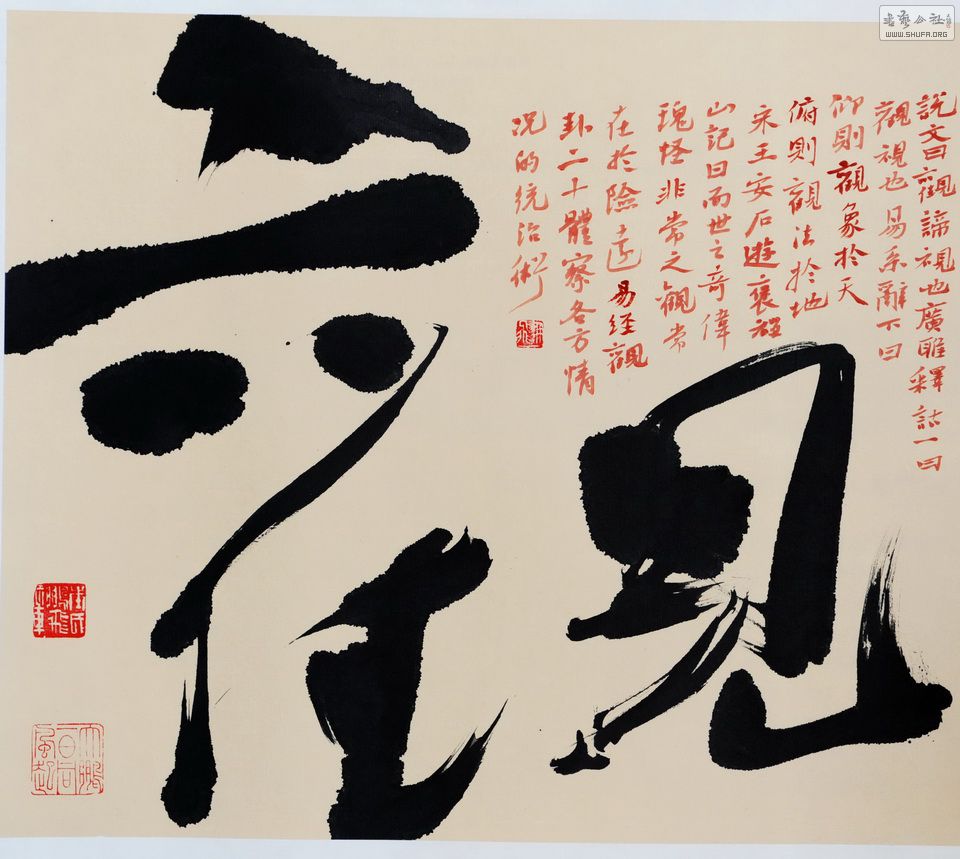 觀
說文曰觀諦視也廣雅釋詁一曰
觀視也易系辭下曰
仰則觀象於天
俯則觀法於地
宋王安石遊褒禅
山記曰而世之奇偉
瑰怪非常之觀常
在於險遠易经觀
卦二十體察各方情
况的统治術
大鵬一日同風起
書藝公社
WWW.SHUFA.ORG